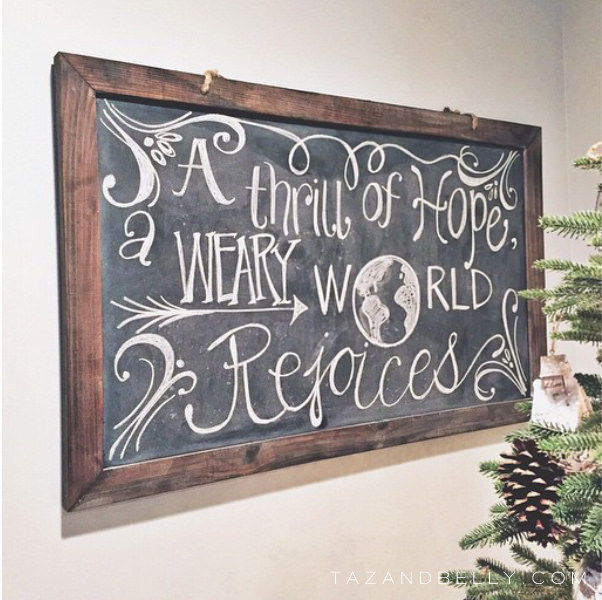 A thrill of Hope,
a WEARY WORLD
Rejoices
TAZANDBELLY.COM